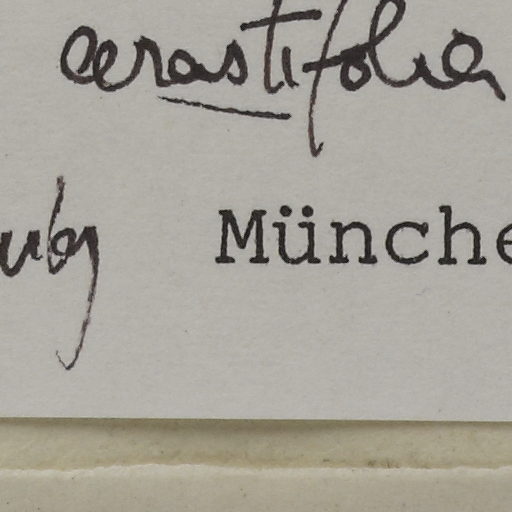 cerastifolia
Münche